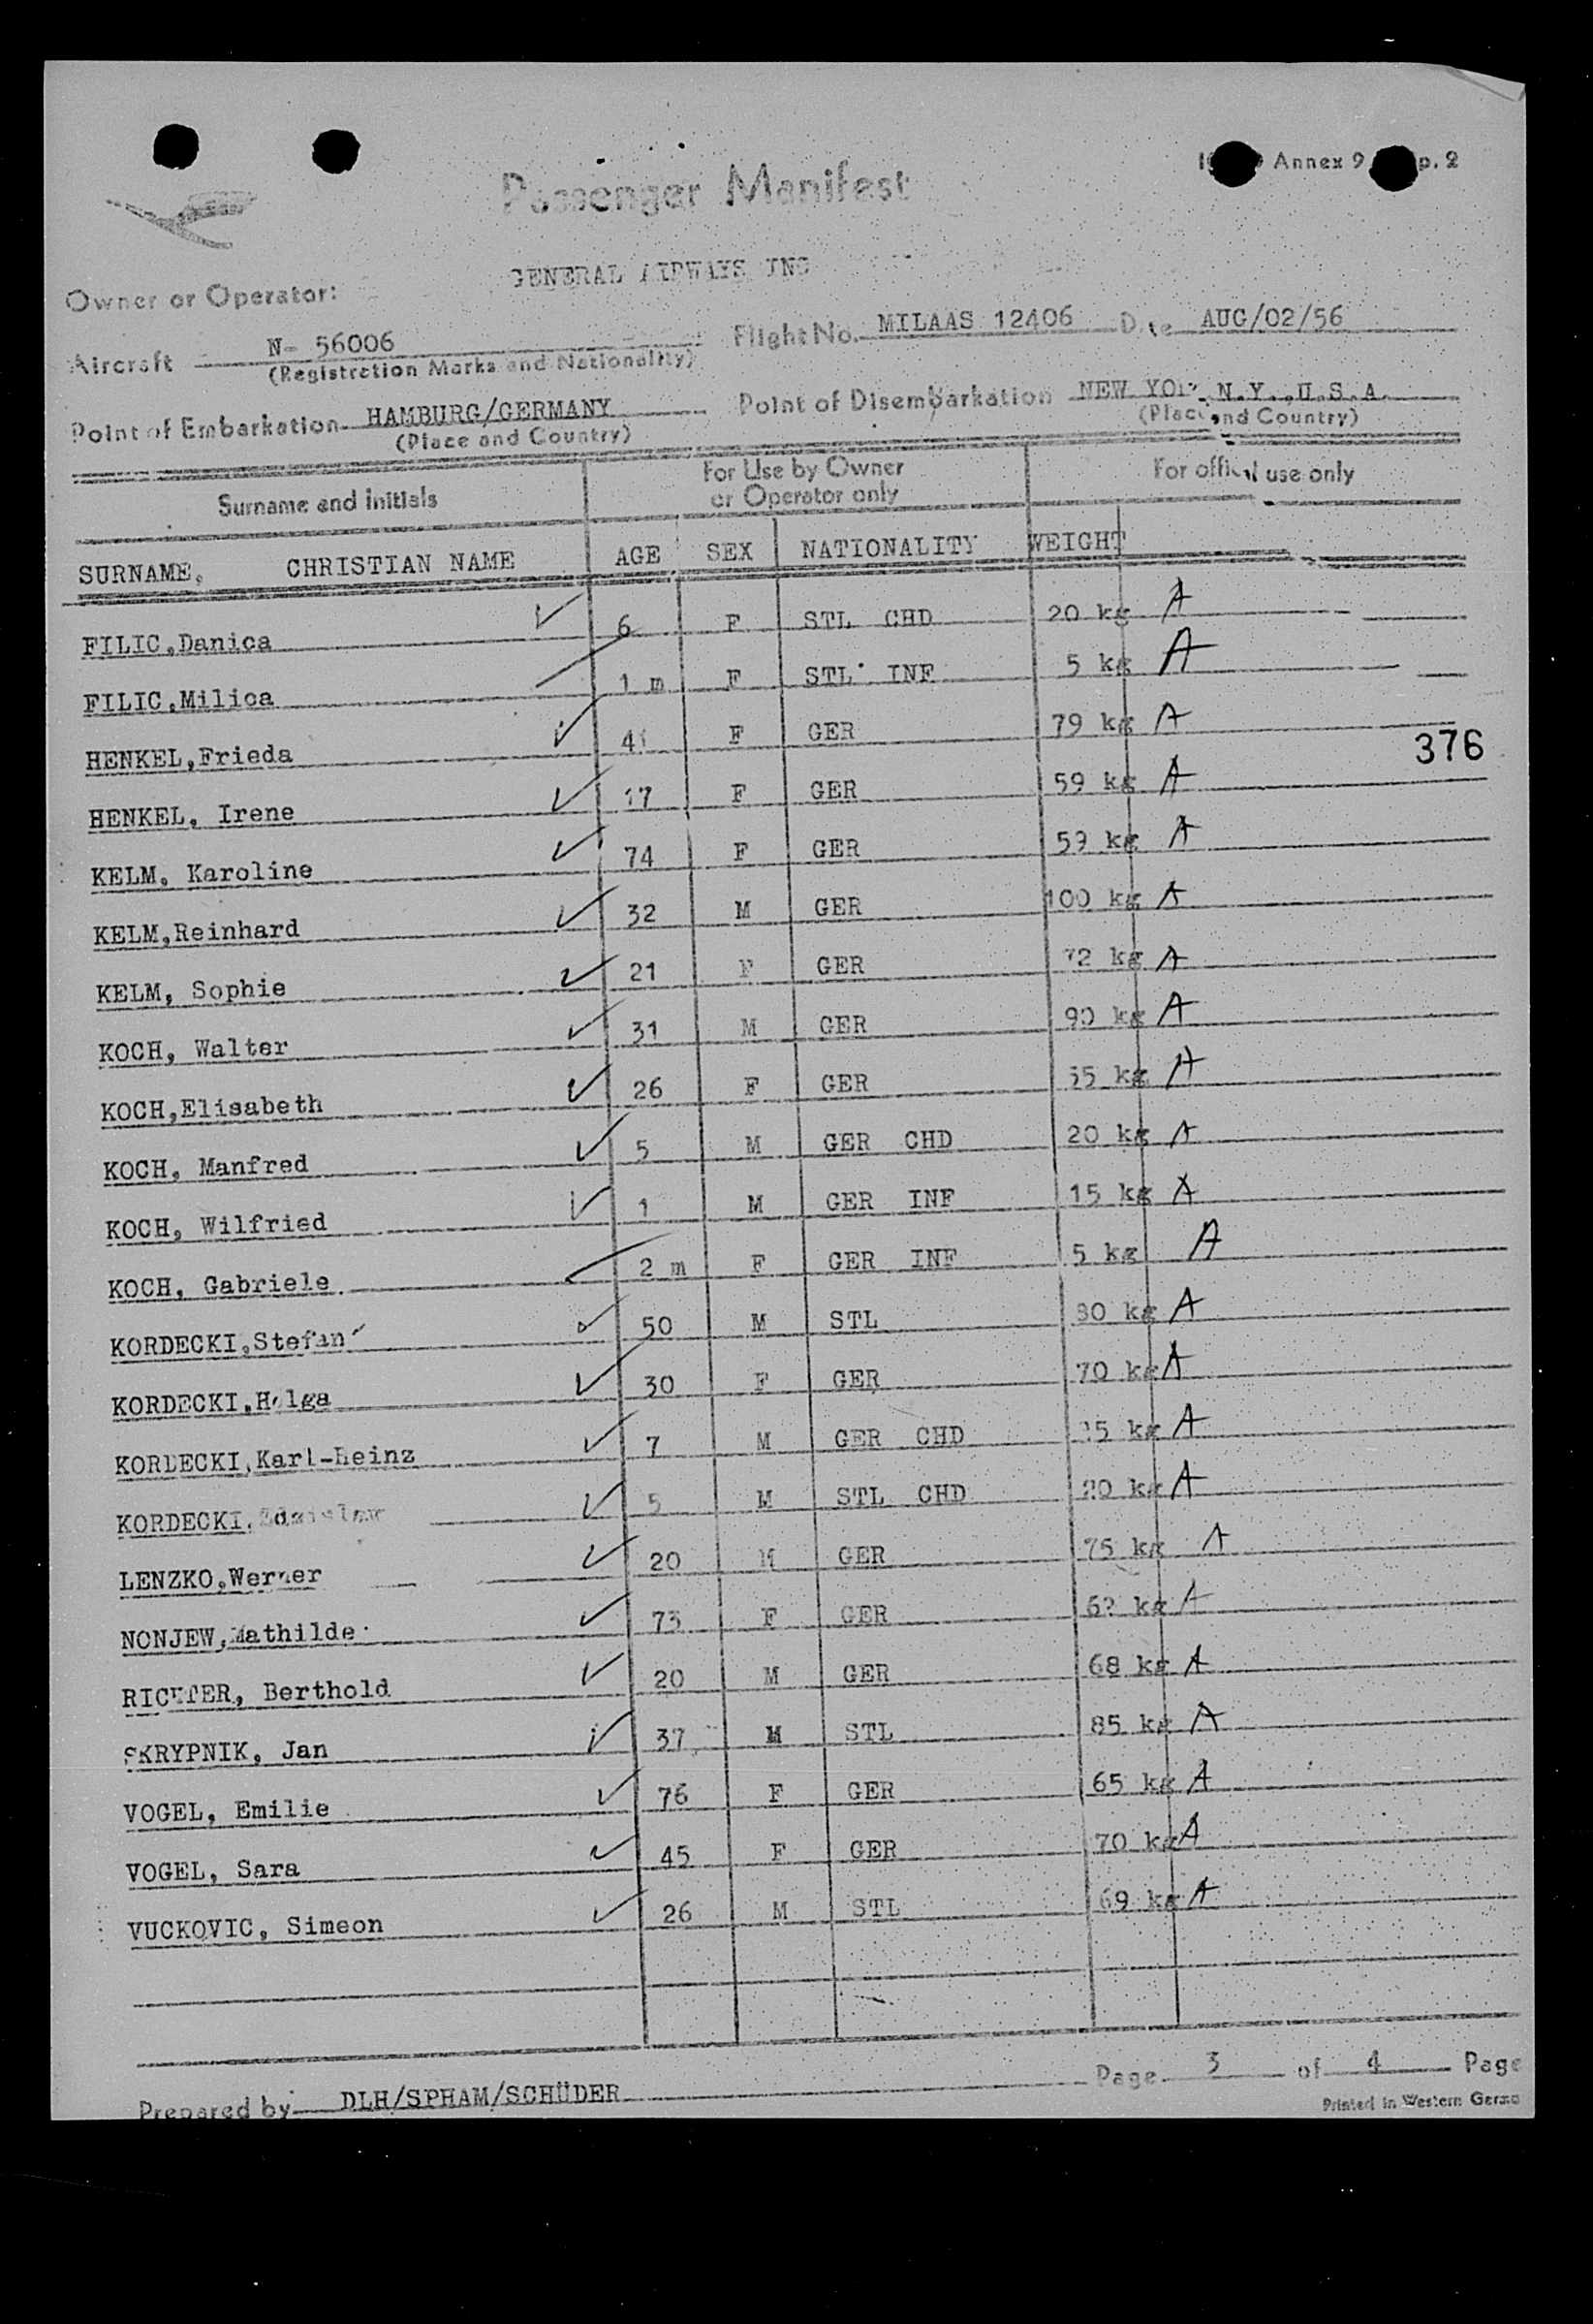 Annex 9 p. 2
Passenger Manifest
GENERAL AIRWAYS INC
Owner or Operator:
Aircraft N- 56006 Flight No. MILAAS 12406 Date AUG/02/56
(Registration Marks and Nationality)
Point of Embarkation HAMBURG/GERMANY Point of Disembarkation NEW YORK N.Y.,U.S.A.
(Place and Country) (Place and Country)
Surname and initials For Use by Owner or Operator only For official use only
SURNAME, CHRISTIAN NAME AGE SEX NATIONALITY WEIGHT
FILIC,Danica 6 F STL CHD 20 kg A
FILIC,Milica 1 m F STL INF 5 kg A
HENKEL,Frieda F GER 79 kg A
376
HENKEL, Irene 17 F GER 59 kg A
KELM, Karoline 74 F GER kg A
KELM,Reinhard 32 M GER 100 kg A
KELM, Sophie 21 F GER 72 kg A
KOCH, Walter 31 M GER 90 kg A
KOCH,Elisabeth 26 F GER kg A
KOCH, Manfred 5 M GER CHD 20 kg A
KOCH, Wilfried 1 M GER INF 15 kg A
KOCH, Gabriele 2 m F GER INF 5 kg A
KORDECKI,Stefan 50 M STL kg A
KORDECKI,Helga 30 F GER 70 kg A
KORDECKI,Karl-Heinz 7 M GER CHD kg A
KORDECKI, 5 M STL CHD 20 kg A
LENZKO,Werner 20 M GER 75 kg A
NONJEW,Mathilde 73 F GER kg A
RICHTER, Berthold 20 M GER 68 kg A
SKRYPNIK, Jan 37 M STL 85 kg A
VOGEL, Emilie 76 F GER 65 kg A
VOGEL, Sara 45 F GER 70 kg A
VUCKOVIC, Simeon 26 M STL 69 kg A
Page 3 of 4 Page
Prepared by DLH/SPHAM/SCHÜDER
Printed in Western Germa